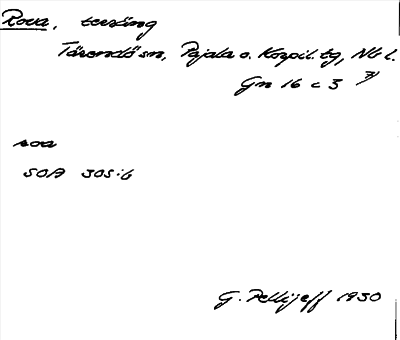 Rova, terräng
Tärendö sn, Pajala o. Korpil. tg, Nb l.
Gn 16 c 3
roa
SOA 305:6
G. Pellijeff 1930